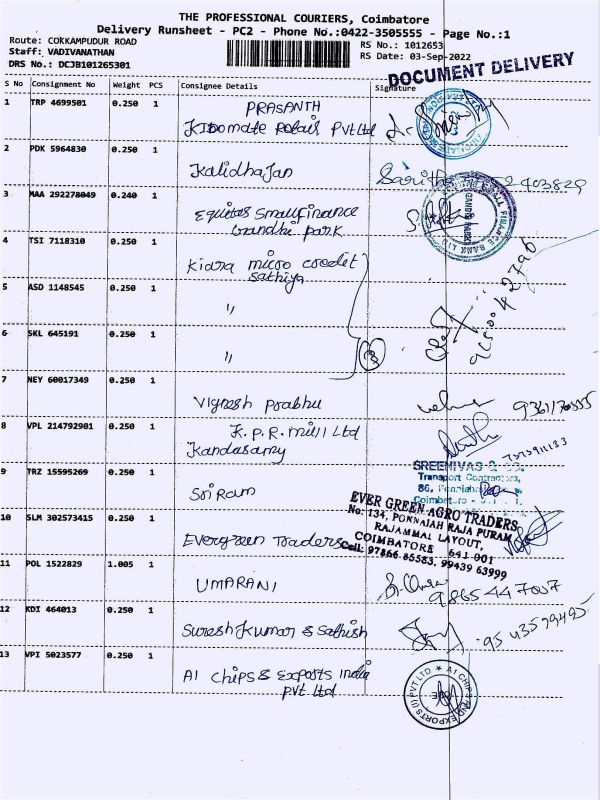 THE PROFESSIONAL COURIERS, Coimbatore
Delivery Runsheet - PC2 - Phone No.:0422-3505555 - Page No.:1
Route: COKKAMPUDUR ROAD
Staff: VADIVANATHAN
DRS No.: DCJB101265301
RS No.: 1012653
RS Date: 03-Sep-2022
DOCUMENT DELIVERY
S No Consignment No Weight PCS Consignee Details Signature
1 TRP 4699501 0.250 1 PRASANTH
Kidomate Retais Pvt Ltd
2 PDK 5964830 0.250 1
Kalidhajan
3 MAA 292278049 0.240 1
Equitas Smallfinance
Gandhi park
GANDHI PARK
FINANCE BANK LTD
4 TSI 7118310 0.250 1 Kiara micro credit
Sathiya
5 ASD 1148545 0.250 1
"
6 SKL 645191 0.250 1
" 3
7 NEY 60017349 0.250 1
Vignesh Prabhu
8 VPL 214792901 0.250 1 K.P.R. mill Ltd
Kandasamy
SREENIVAS & CO.
Transport Contractors,
9 TRZ 15595269 0.250 1
Sri Ram
10 SLM 302573415 0.250 1
Evergreen Traders
EVER GREEN AGRO TRADERS
No: 134, PONNAIAH RAJA PURAM,
RAJAMMAL LAYOUT,
COIMBATORE 641 001
Cell: 97866 65583, 99439 63999
11 POL 1522829 1.005 1
UMARANI
9865447007
12 KDI 464013 0.250 1
Suresh Kumar & Sathish
9543579495
13 VPI 5023577 0.250 1
AI Chips & Exports India
Pvt Ltd
A1 CHIPS AND EXPORTS (I) PVT LTD